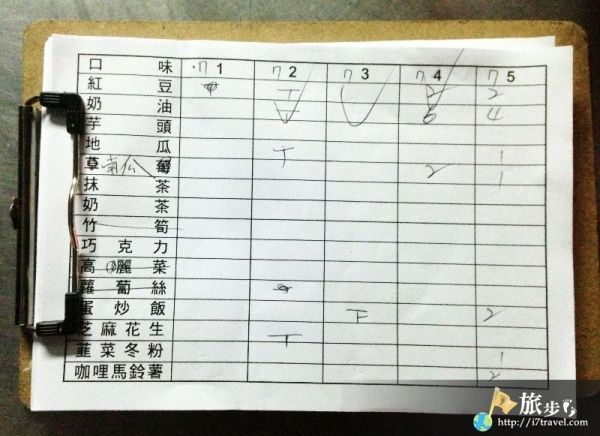 口味 7 1 7 2 7 3 7 4 7 5
紅豆 2 2
奶油 6 4
芋頭
地瓜 T 1
草莓 南瓜 2 1
抹茶
奶茶
竹筍
巧克力
高麗菜
蘿蔔絲
蛋炒飯 下 2
芝麻花生 T
韮菜冬粉 1
咖哩馬鈴薯 2
旅步
http://i7travel.com